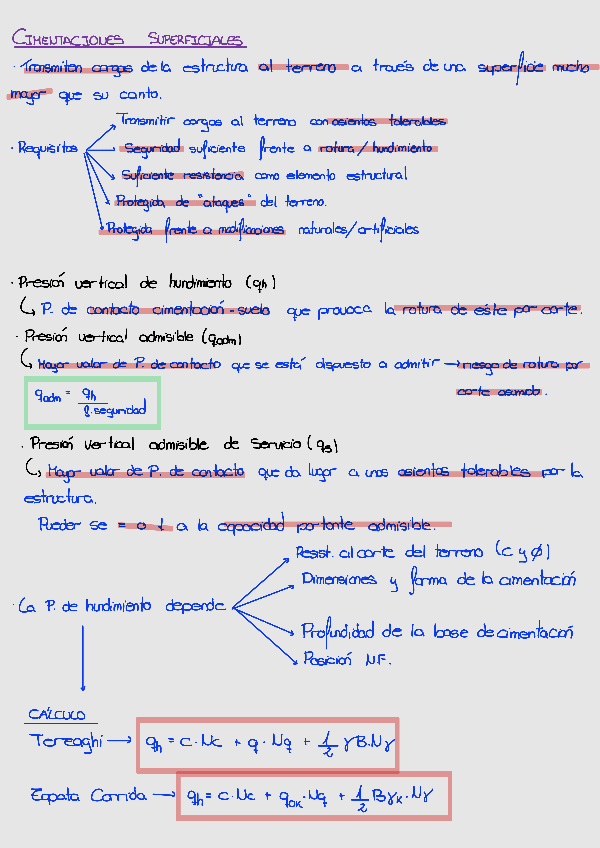 CIMENTACIONES SUPERFICIALES
· Transmiten cargas de la estructura al terreno a través de una superficie mucho
mayor que su canto.
Transmitir cargas al terreno con asientos tolerables
· Requisitos
Seguridad suficiente frente a rotura/hundimiento
Suficiente resistencia como elemento estructural
Protegida de "ataques" del terreno.
Protegida frente a modificaciones naturales/artificiales
· Presión vertical de hundimiento (qh)
↳ P. de contacto cimentación-suelo que provoca la rotura de éste por corte.
· Presión vertical admisible (qadm)
↳ Mayor valor de P. de contacto que se está dispuesto a admitir → riesgo de rotura por
corte asumido.
qadm = qh / f. seguridad
· Presión vertical admisible de Servicio (qs)
↳ Mayor valor de P. de contacto que da lugar a unos asientos tolerables por la
estructura.
Pueder se = o ↓ a la capacidad portante admisible.
Resist. al corte del terreno (c y ϕ)
Dimensiones y forma de la cimentación
· La P. de hundimiento depende
Profundidad de la base de cimentación
Posición NF.
CÁLCULO
Terzaghi → qh = c · Nc + q · Nq + 1/2 γB·Nγ
Zapata Corrida → qh = c·Nc + qok·Nq + 1/2 Bγk·Nγ